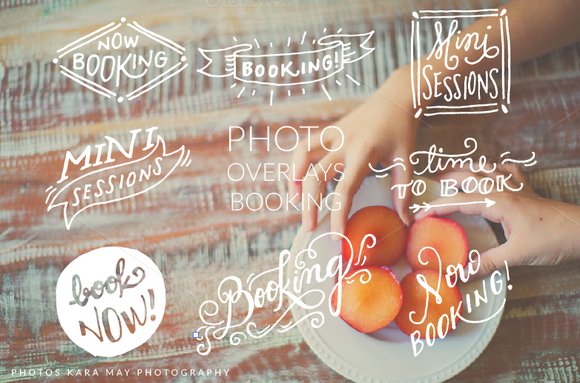 NOW
BOOKING
BOOKING!
Mini
SESSIONS
MINI
SESSIONS
PHOTO
OVERLAYS
BOOKING
time
TO BOOK
book
NOW!
Booking
Now
BOOKING!
PHOTOS KARA MAY PHOTOGRAPHY